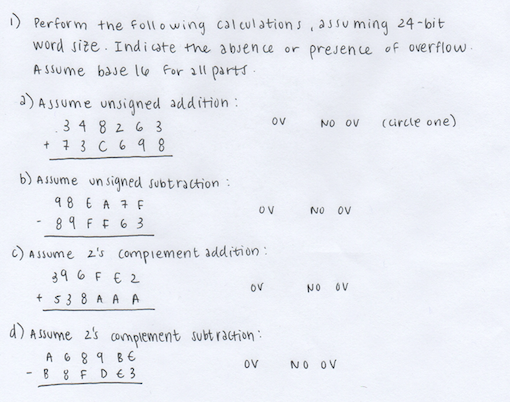 1) Perform the following calculations, assuming 24-bit
word size. Indicate the absence or presence of overflow.
Assume base 16 for all parts.
a) Assume unsigned addition:
3 4 8 2 6 3
OV NO OV (circle one)
+ 7 3 C 6 9 8
b) Assume unsigned subtraction:
9 8 E A 7 F
- 8 9 F F 6 3
OV NO OV
c) Assume 2's complement addition:
3 9 6 F E 2
+ 5 3 8 A A A
OV NO OV
d) Assume 2's complement subtraction:
A 6 8 9 B E
- B 8 F D E 3
OV NO OV